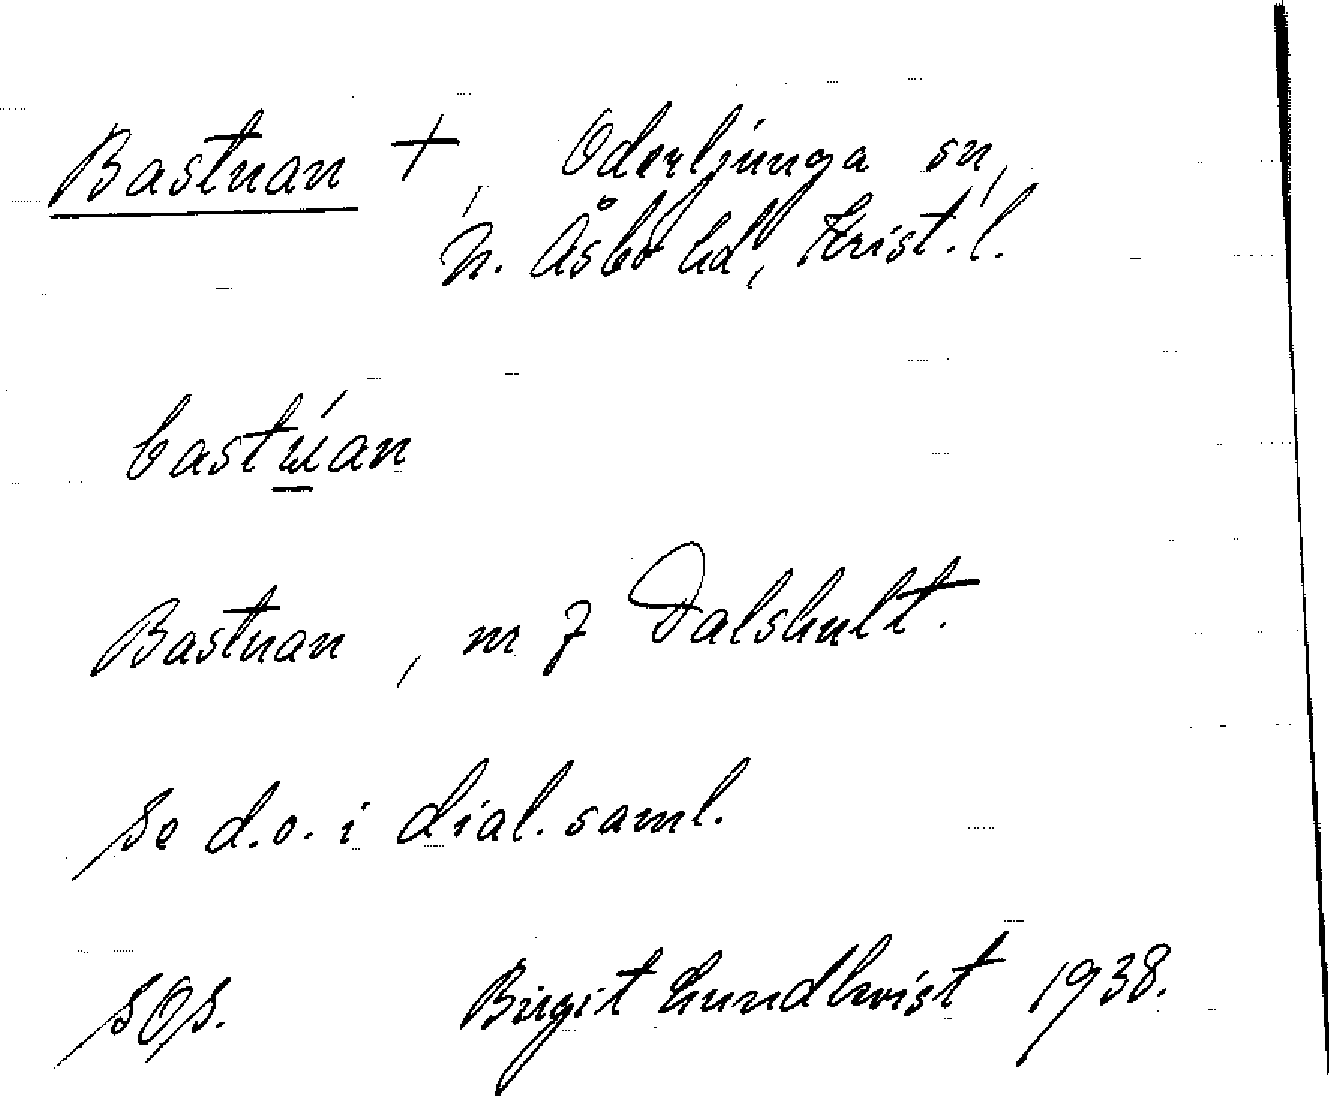 Bastuan +, Oderljunga sn,
N. Åsbo hd, Krist. l.
bastúan
Bastuan, m 7 Dalshult.
Se d.o. i dial. saml.
SOS. Birgit Lundkvist 1938.